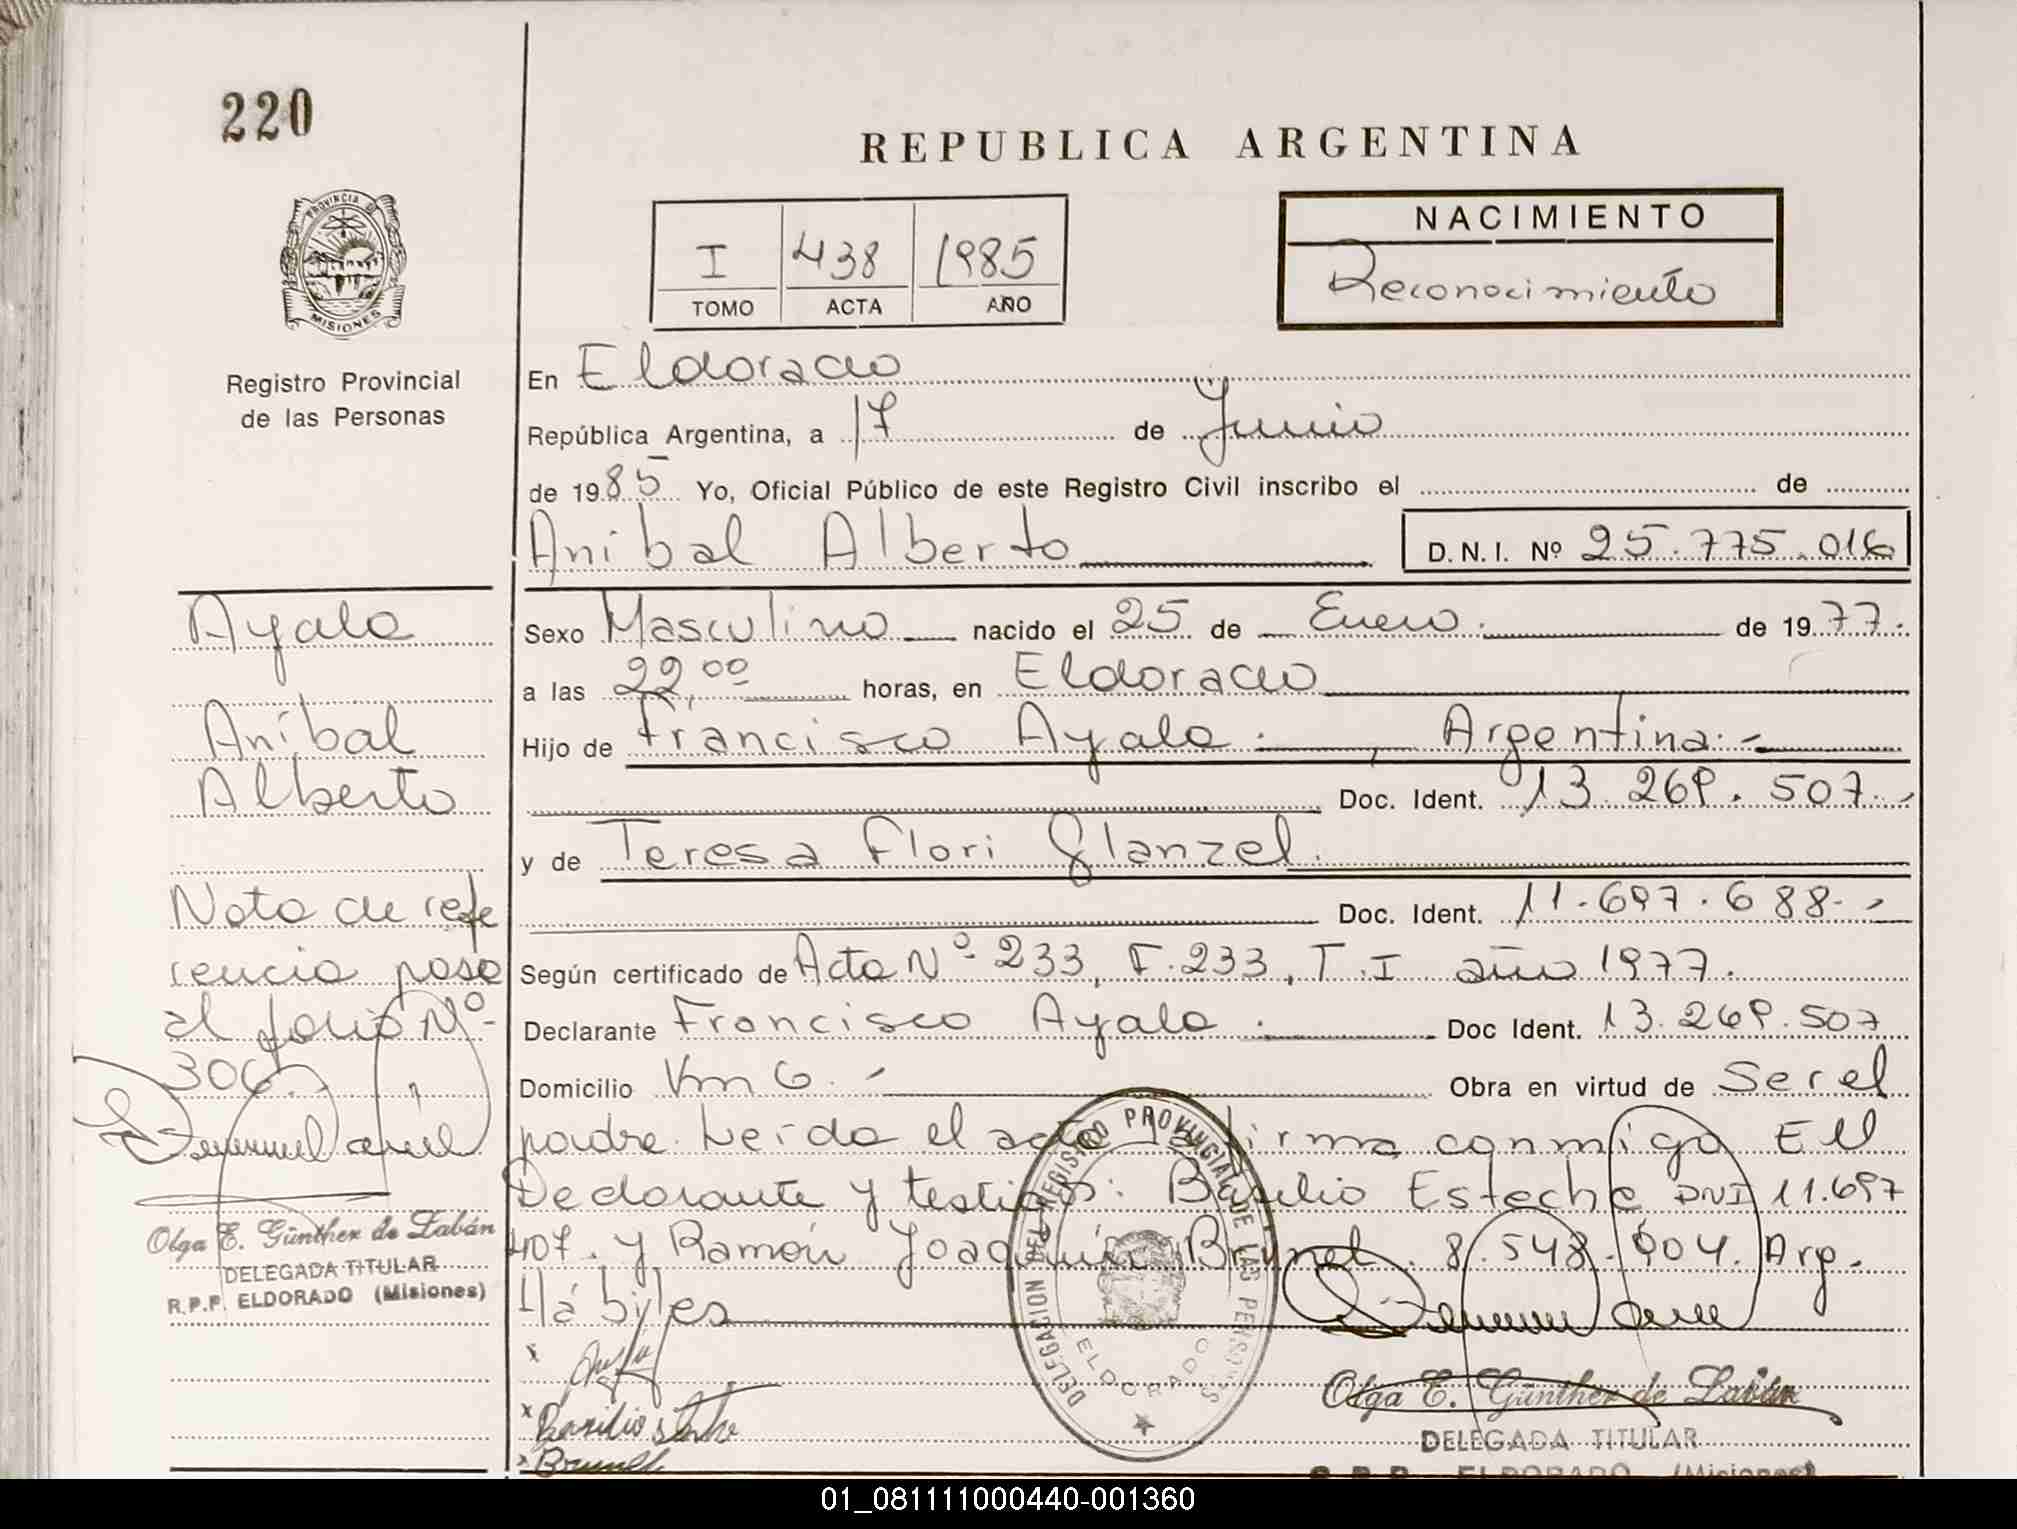 220
REPUBLICA ARGENTINA
PROVINCIA D
MISIONES
I 438 1985
TOMO ACTA AÑO
NACIMIENTO
Reconocimiento
Registro Provincial
de las Personas
En Eldorado
República Argentina, a 17 de Junio
de 1985 Yo, Oficial Público de este Registro Civil inscribo el de
Anibal Alberto D.N.I. Nº 25.775.016
Ayala
Anibal
Alberto
Nota de refe
rencia pasa
al folio Nº
306.
Olga E. Günther de Labán
DELEGADA TITULAR
R.P.P. ELDORADO (Misiones)
Sexo Masculino nacido el 25 de Enero. de 1977.
a las 22,00 horas, en Eldorado
Hijo de Francisco Ayala. , Argentina.-
Doc. Ident. 13.269.507.-
y de Teresa Flori Glanzel.
Doc. Ident. 11.697.688.-
Según certificado de Acta Nº 233, F.233, T.I año 1977.
Declarante Francisco Ayala. Doc Ident. 13.269.507
Domicilio Km 6.- Obra en virtud de Ser el
padre. Leída el acta la firma conmigo El
Declarante y testigos: Basilio Esteche DNI 11.697
407. y Ramón Joaquín Brunel. 8.548.904. Arg.
Hábiles
DELEGACION DEL REGISTRO PROVINCIAL DE LAS PERSONAS
ELDORADO
x
x Basilio
x Brunel
Olga E. Günther de Labán
DELEGADA TITULAR
R.P.P. ELDORADO (Misiones)
01_081111000440-001360